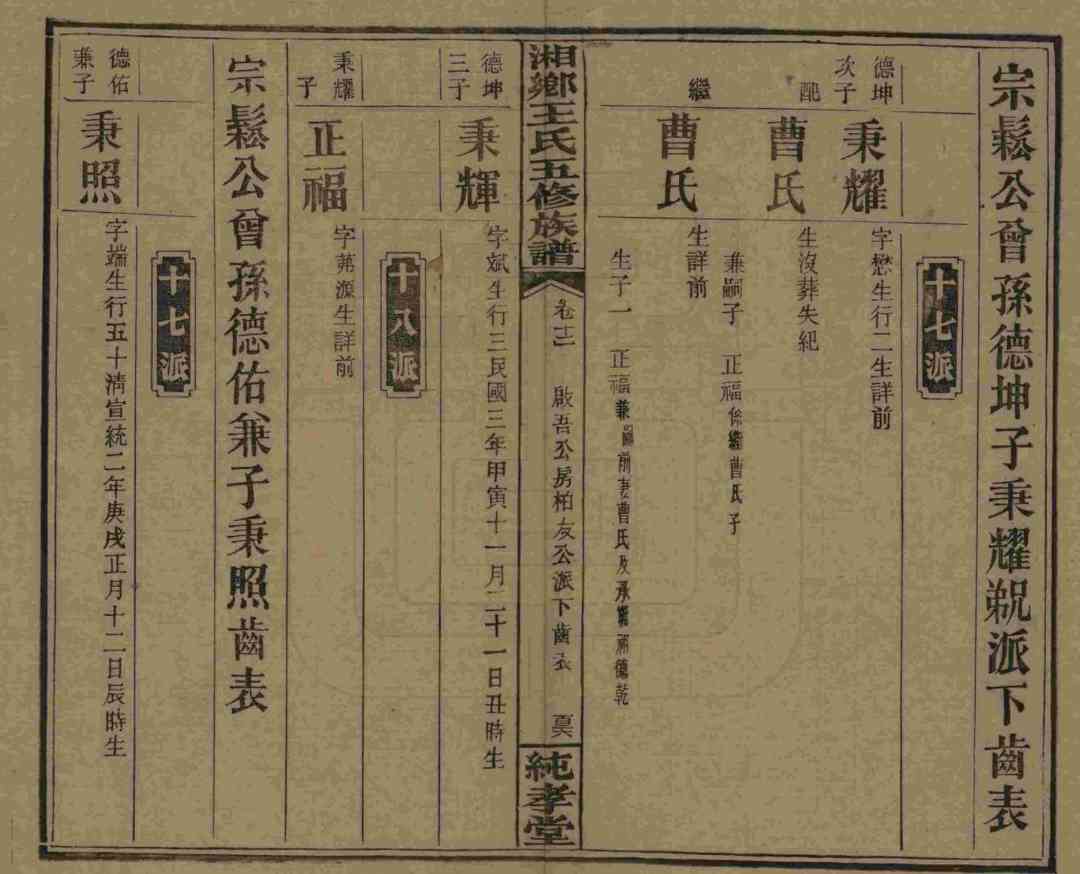 宗鬆公曾孫德坤子秉耀派下齒表
十七派
德坤次子
秉耀
字懋生行二生詳前
配
曹氏
生沒葬失紀
兼嗣子 正福係繼曹氏子
繼
曹氏
生詳前
生子一 正福兼嗣前妻曹氏及承德乾
湘鄉王氏五修族譜
卷十二 啟吾公房柏友公派下齒表
純孝堂
德坤三子
秉輝
字斌生行三民國三年甲寅十一月二十一日丑時生
十八派
秉耀子
正福
字第源生詳前
宗鬆公曾孫德佑兼子秉照齒表
十七派
德佑兼子
秉照
字端生行五十清宣統二年庚戌正月十二日辰時生